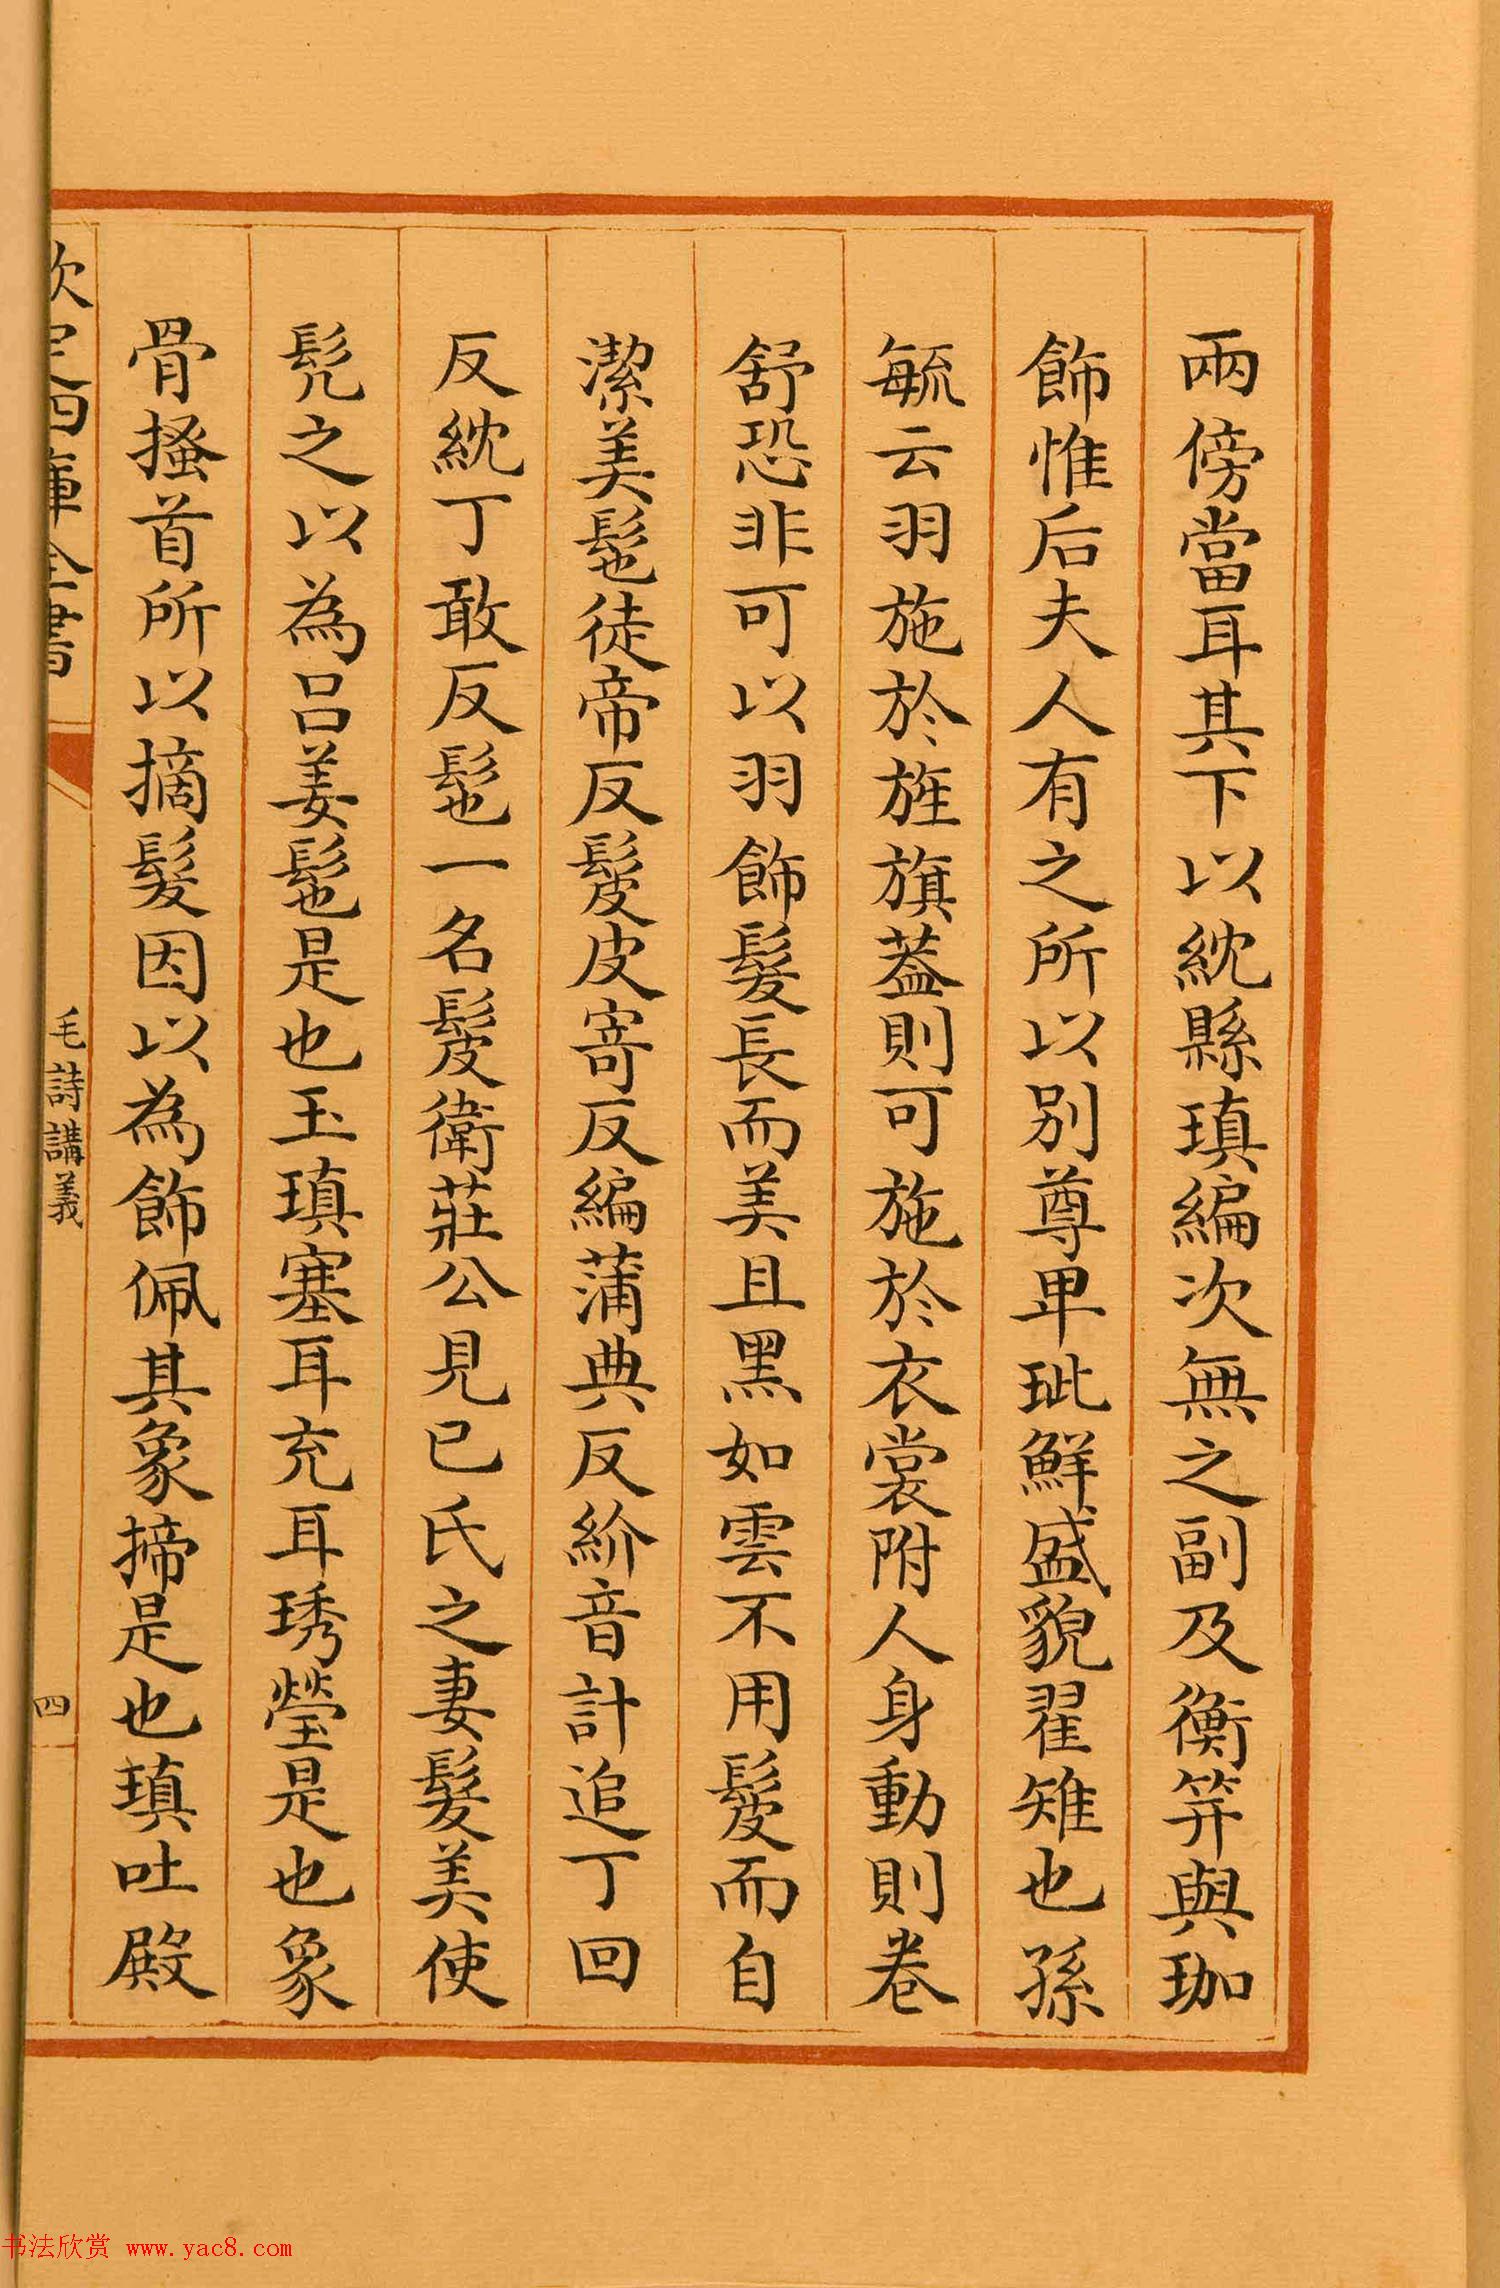 兩傍當耳其下以紞縣瑱編次無之副及衡笄與珈
飾惟后夫人有之所以别尊卑玼鮮盛貌翟雉也孫
毓云羽施於旌旗葢則可施於衣裳附人身動則卷
舒恐非可以羽飾髮長而美且黑如雲不用髲而自
潔美髢徒帝反髲皮寄反編蒲典反紒音計追丁回
反紞丁敢反髢一名髲衛莊公見已氏之妻髮美使
髠之以為吕姜髢是也玉瑱塞耳充耳琇瑩是也象
骨搔首所以摘髮因以為飾佩其象揥是也瑱吐殿
欽定四庫全書
毛詩講義
四
书法欣赏 www.yac8.com